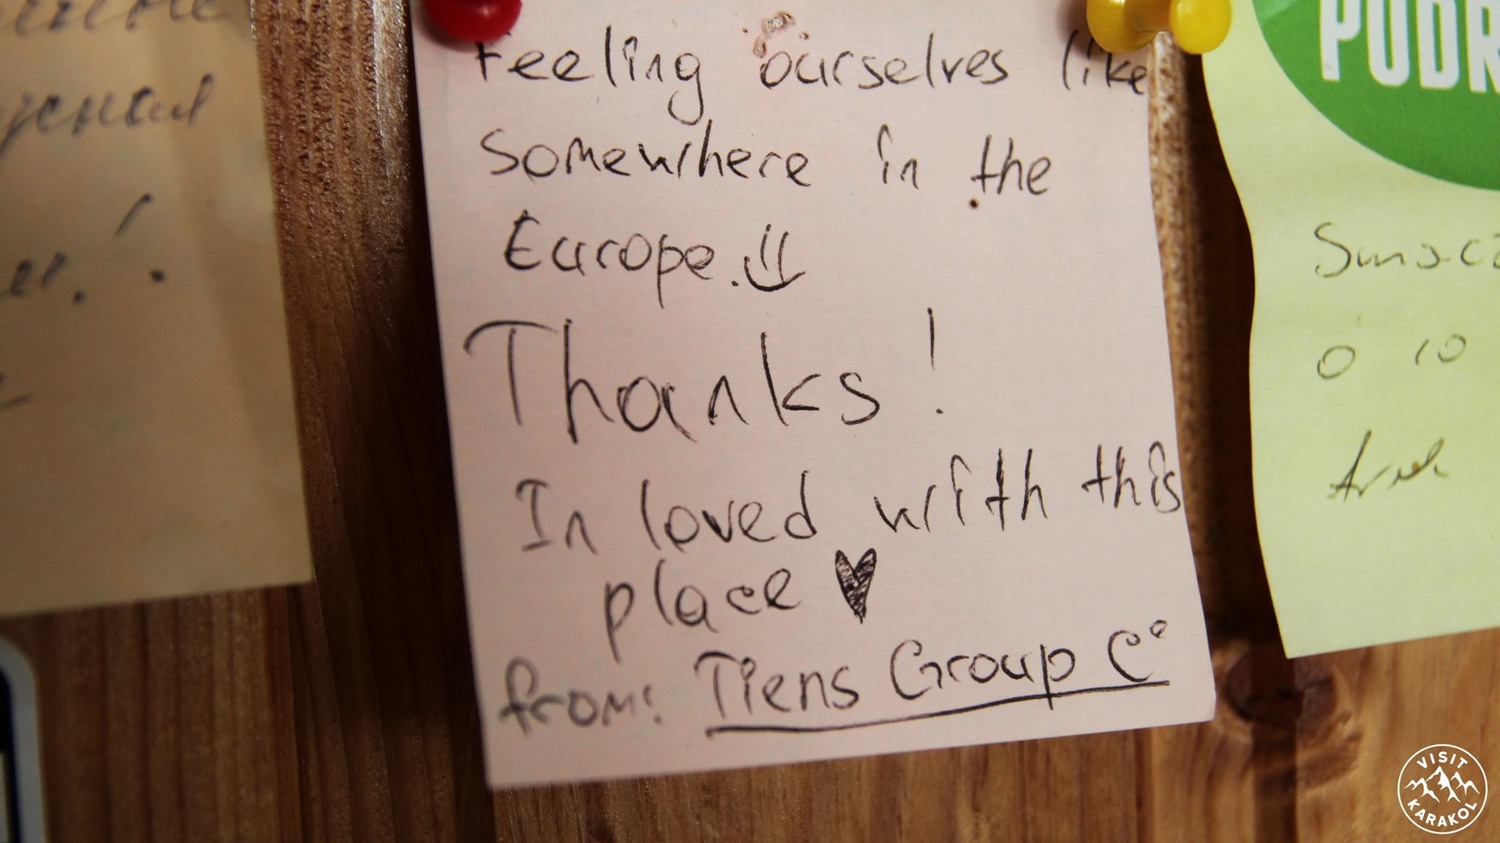 Feeling ourselves like
somewhere in the
Europe.
Thanks!
In loved with this
place ♥
from: Tiens Group C°
PODR
VISIT
KARAKOL